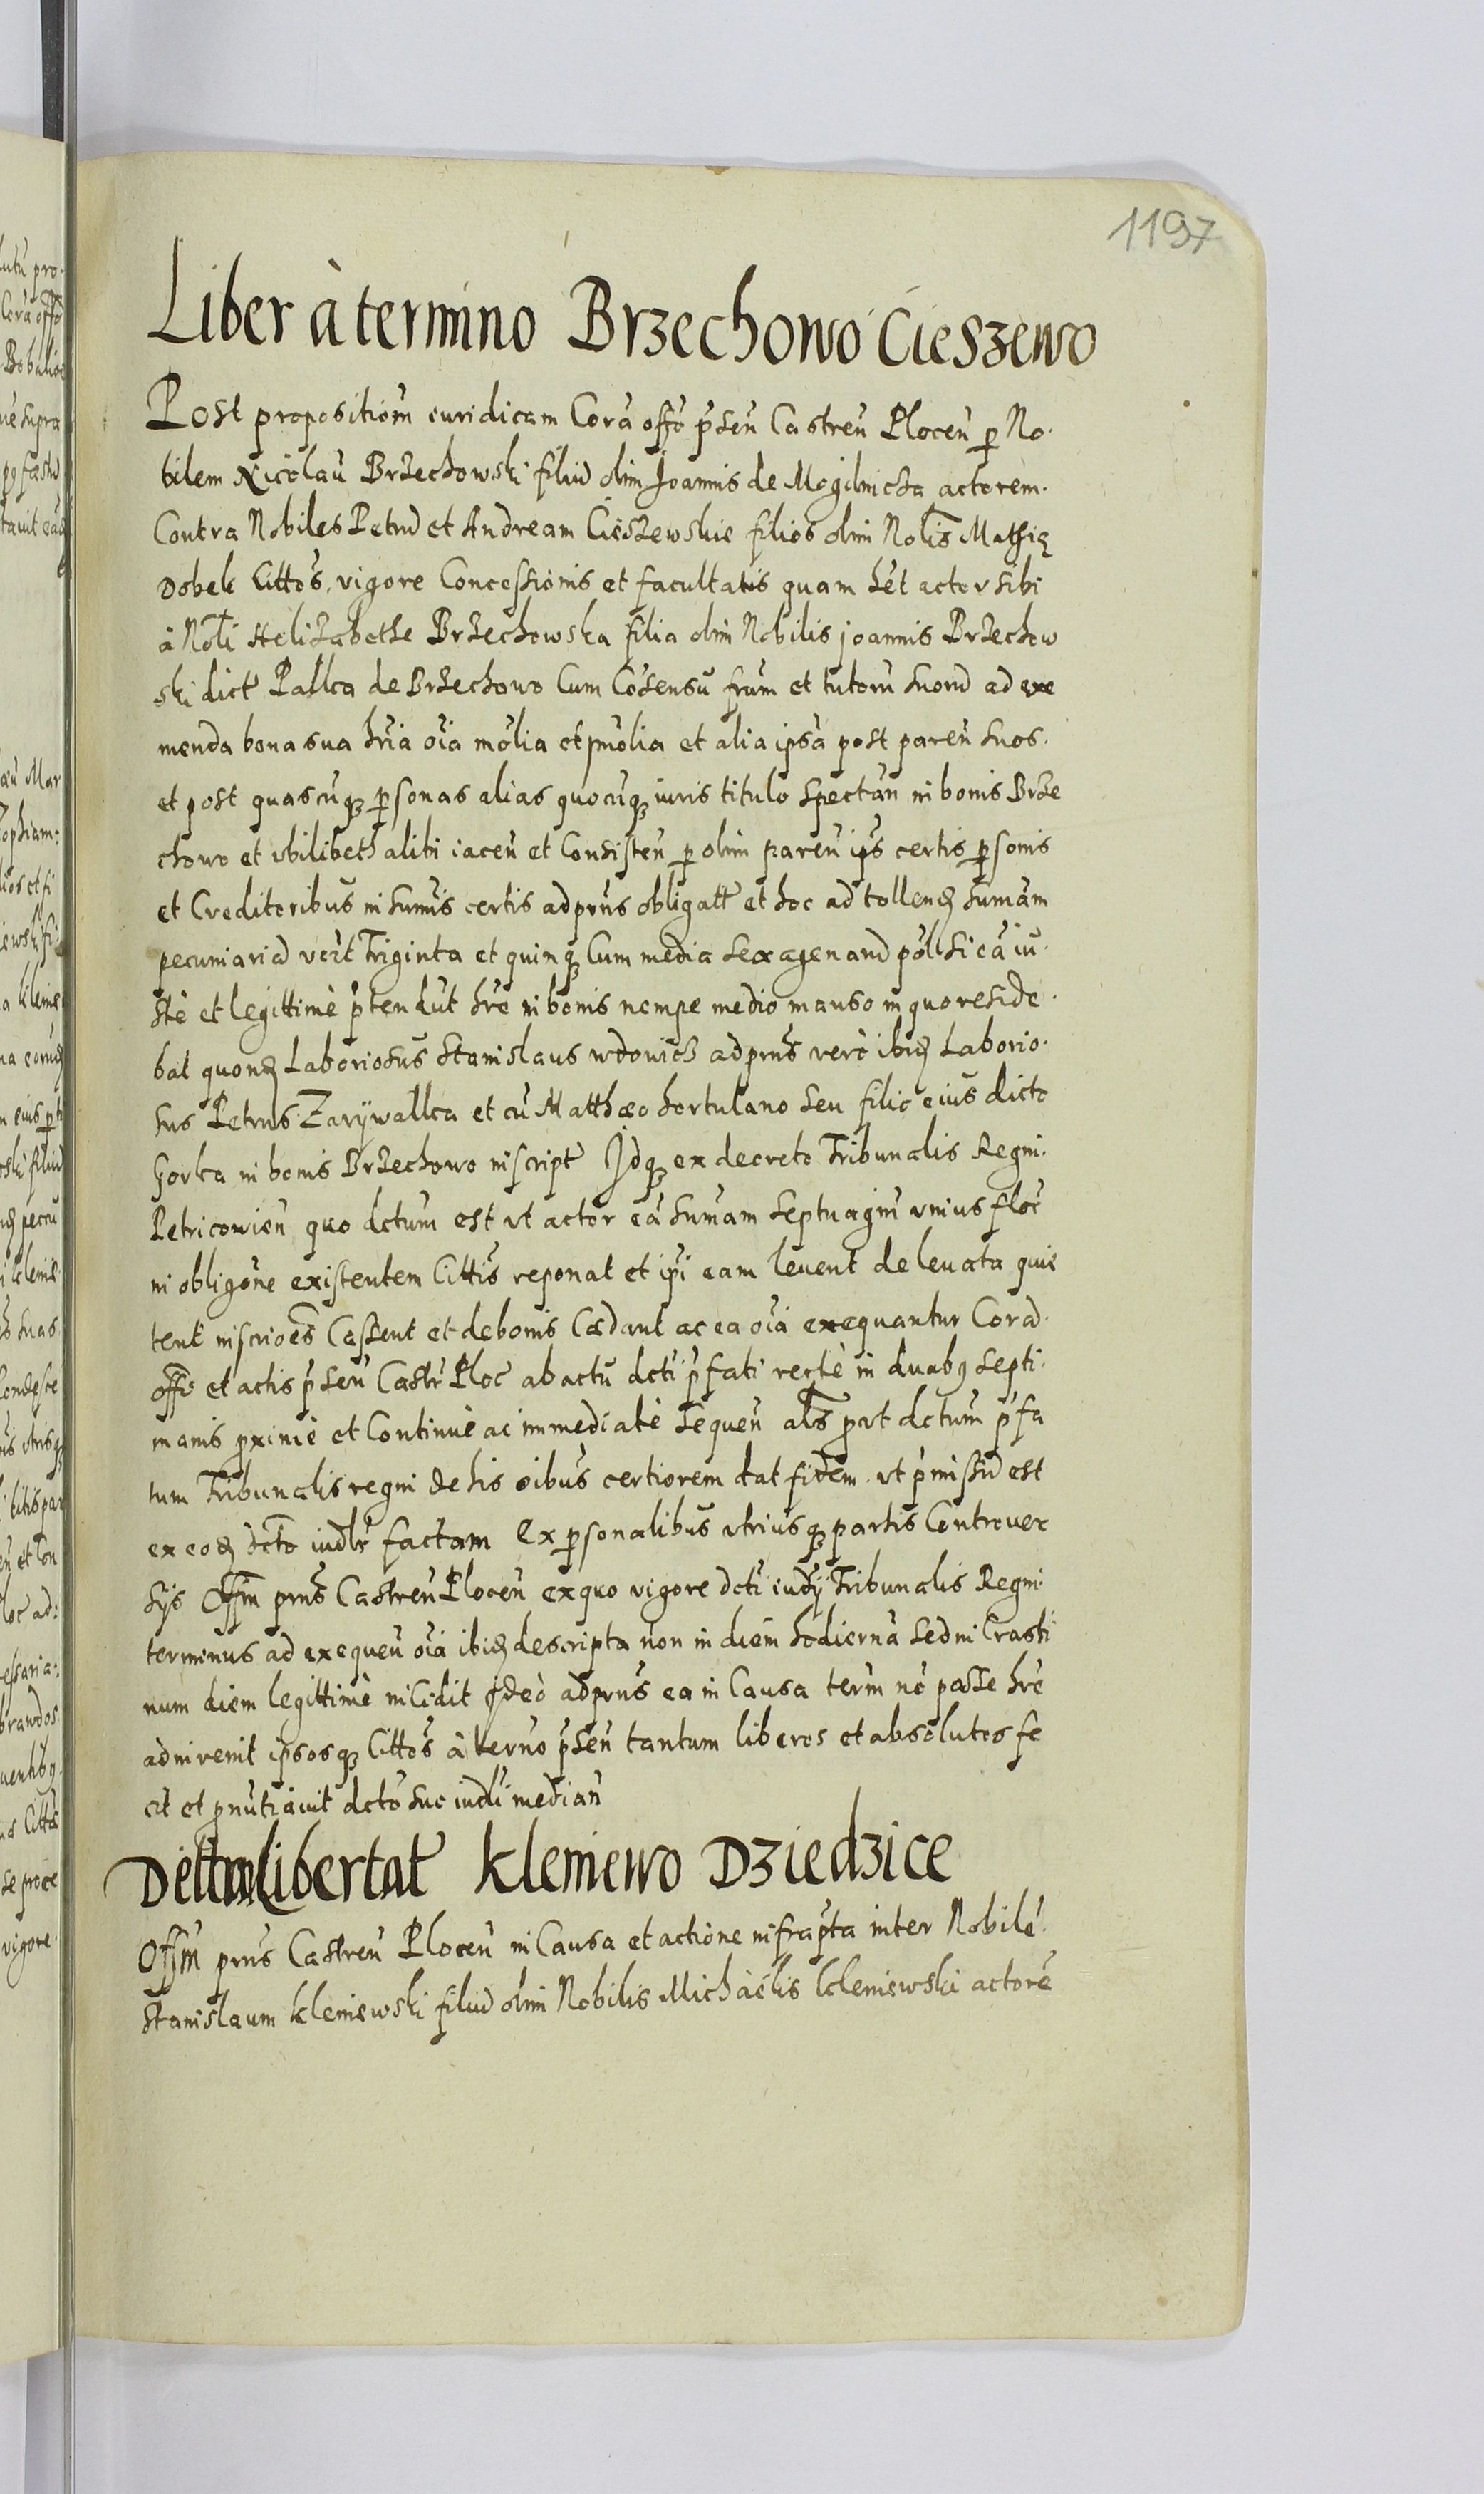 1197
Liber à termino Brzechowo Cieszewo
Post propositiom̃ iuridicam Corã offo p̃sen̄ Castren̄ Plocen̄ p No-
bilem Nicolaũ Brzechowski filiũ olim Joannis de Mogilnicza actorem.
Contra Nobiles Petrũ et Andream Cieszewskie filios olim Nolis̃ Mathię
Dobek Cittos̃, vigore Concessionis et facultatis quam hẽt actor sibi
à Nolĩ Helizabethe Brzechowska filia olim Nobilis joannis Brzechow
ski dict̃ Pałka de Brzechowo Cum Cõsensũ frum̃ et tutorũ suorũ ad exe
menda bona sua hria õia mõlia et imm̃olia et alia ipsã post paren̄ suos.
et post quascũq personas alias quocũq iuris titulo spectan̄ in bonis Brze
chowo et vbilibeth alibi iacen̄ et Consisten̄ p olim paren̄ ips̃ certis personis
et Creditoribus̃ in sumis̃ certis ad prns̃ obligatt̃ et hoc ad tollend̃ sumãm
pecuniariã vczt̃ Triginta et quinq Cum media sexagenarũ põl si eã iu-
stè et legittimè p̃tendũt hre in bonis nempe medio manso in quo reside-
bat quond̃ Laboriosus Stanislaus wdowich ad prns̃ verò ibid̃ Laborio-
sus Petrus Zarÿwallka et cũ Matthæo hortulano seu filio eius dicto
Gorka in bonis Brzechowo inscript̃ Jdq ex decreto Tribunalis Regni
Petricowien̄ quo dctum est vt actor eã sumam septuagin̄ vnius floc̃
in obligõne existentem Cittis̃ reponat et ipi eam levent de levata quie
tent inscrioẽs Cassent et de bonis Cædant ac ea õia exequantur Corã
offo et actis p̃sen̄ Castr̃ Ploc̃ ab actũ dcti p̃fati rectè in duabq septi-
manis proxime et Continuè ac immediatè sequen̄ als̃ prvt dctum p̃fa
tum Tribunalis regni de his oibus̃ certiorem dat fidem. vt p̃missũ est
ex eod̃ dcto iudlr̃ factam Ex personalibus vtriusq partis Controver
sijs Offm prns̃ Castren̄ Plocen̄ ex quo vigore dcti iudÿ Tribunalis Regni
terminus ad exequen̄ õia ibid̃ descripta non in diem hodiernã sed in Crasti
num diem legittimè incidit Jdeò ad prns̃ ea in Causa term̃ nõ posse hrẽ
adinvenit ipsosq Cittos̃ à terno p̃sen̄ tantum liberos et absolutos fe
cit et pronũtiavit dcto suo iudi median̄
Dettm libertat̃ Kleniewo Dziedzice
Offm̃ prns̃ Castren̄ Plocen̄ in Causa et actione infrap̃ta inter Nobilẽ
Stanislaum Kleniewski filiũ olim Nobilis Michaëlis Kleniewski actorẽ